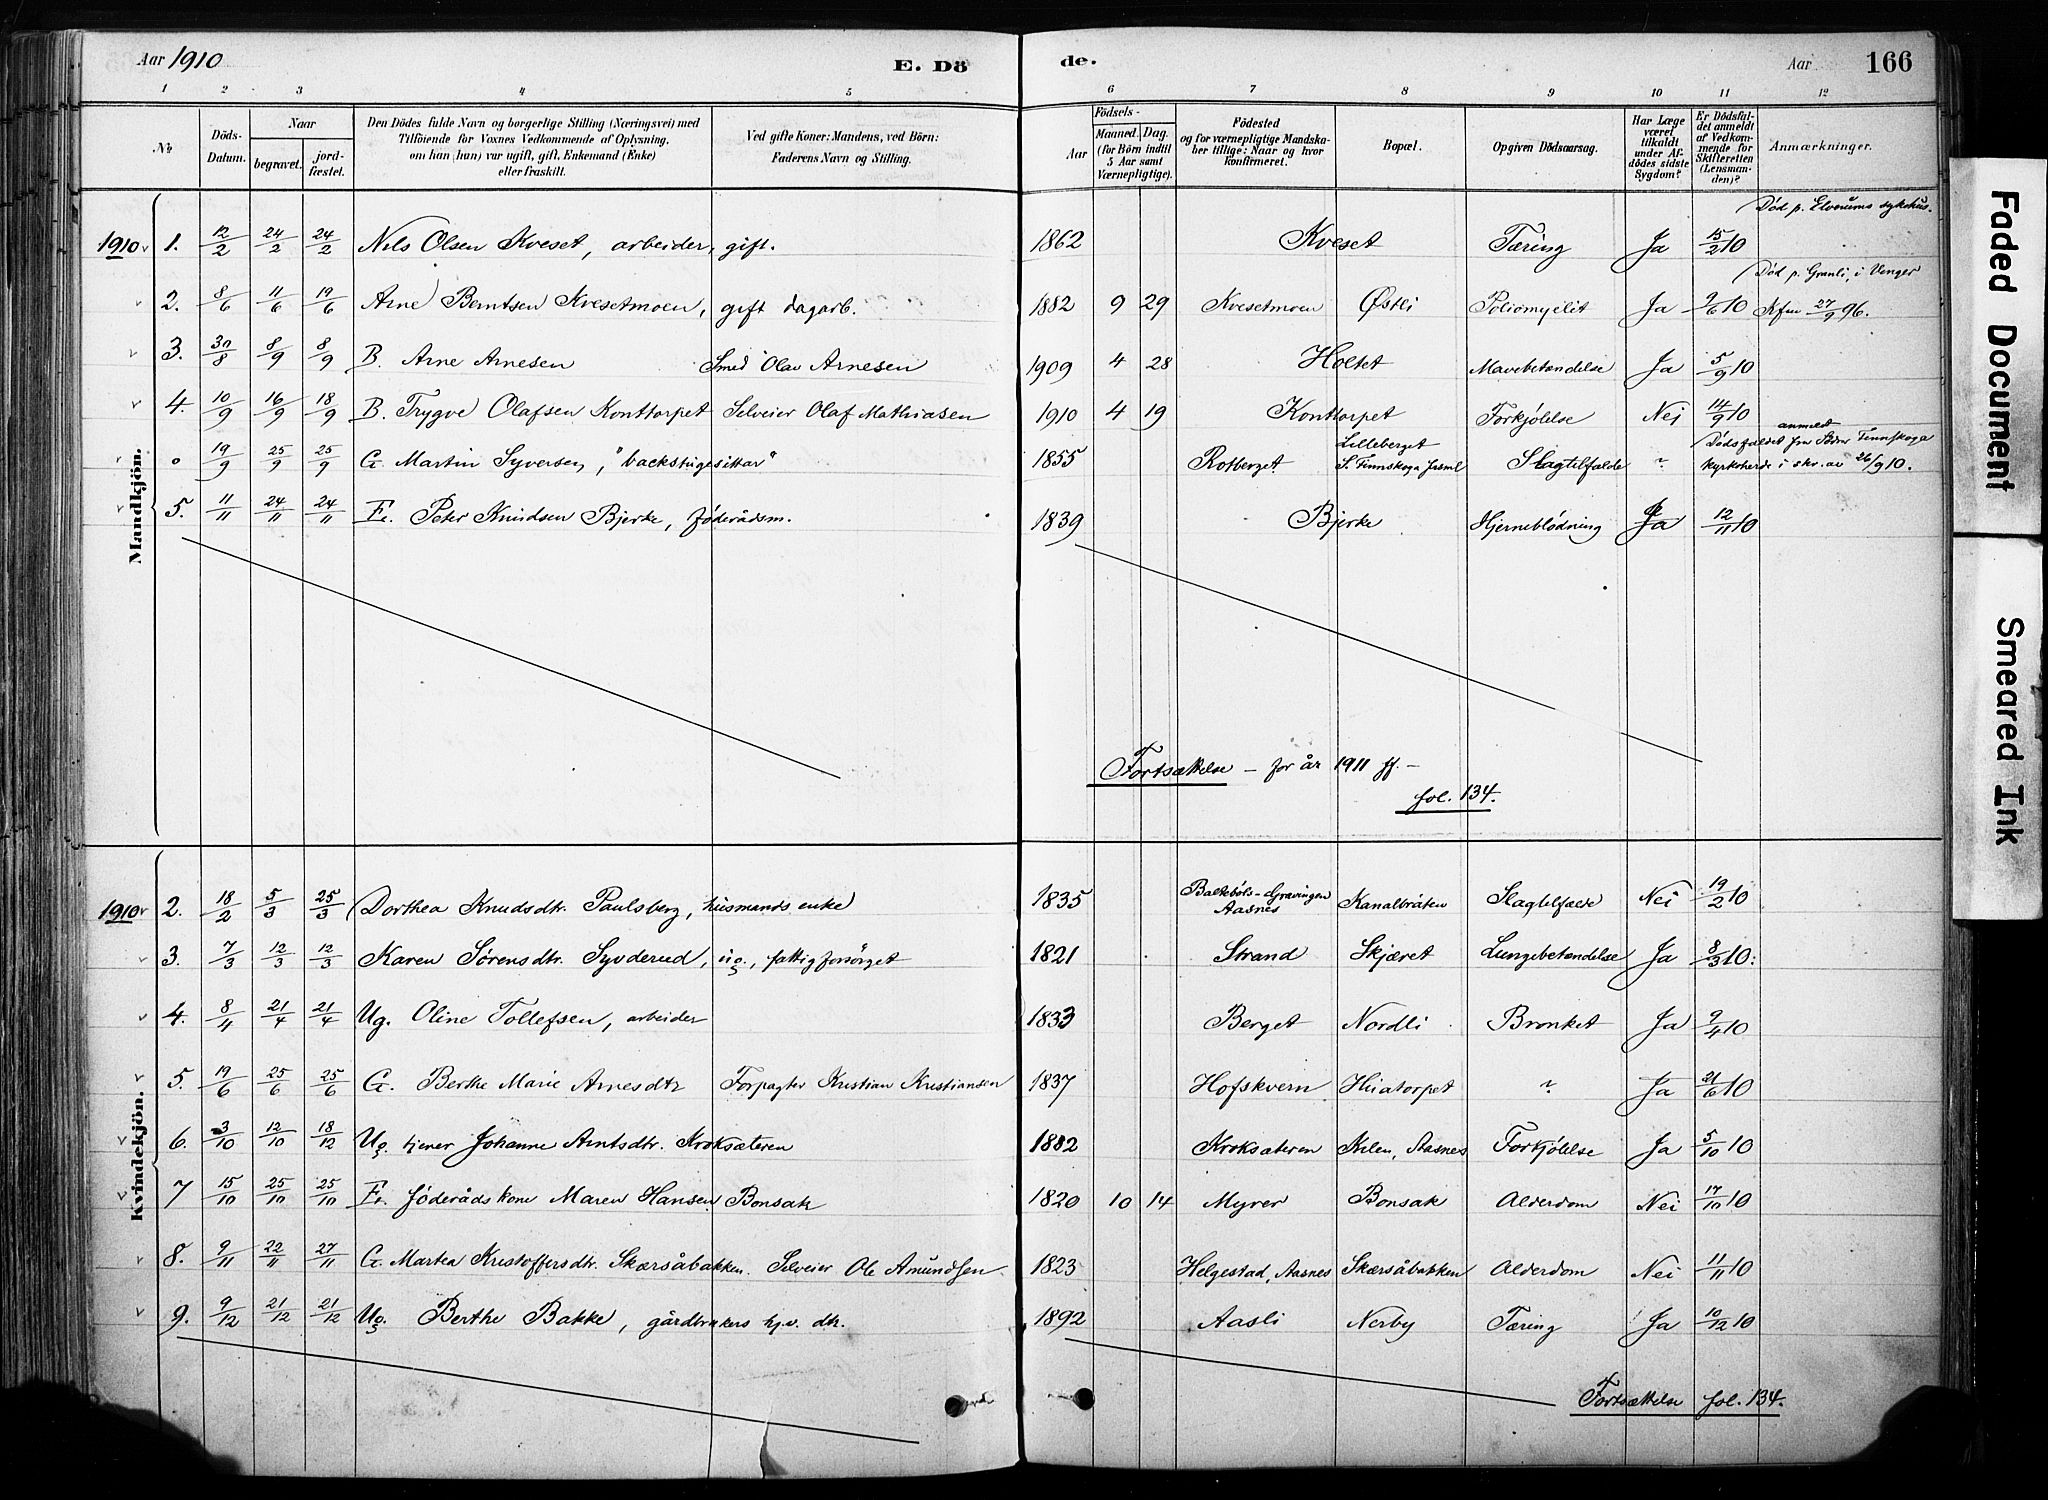 Aar 1910 E. Dö de. Aar 166
1 2 3 4 5 6 7 8 9 10 11 12
No. Döds-Datum. Naar begravet. jord-fæstet. Den Dödes fulde Navn og borgerlige Stilling (Næringsvei) med Tilföiende for Voxnes Vedkommende af Oplysning, om han (hun) var ugift, gift, Enkemand (Enke) eller fraskilt. Ved gifte Koner: Mandens, ved Börn: Faderens Navn og Stilling. Födsels- Aar Maaned. Dag. (for Börn indtil 5 Aar samt Værnepligtige). Födested og for værnepligtige Mandskaber tillige: Naar og hvor konfirmeret. Bopæl. Opgiven Dödsaarsag. Har Læge været tilkaldt under Afdödes sidste Sygdom? Er Dödsfaldet anmeldt af Vedkommende for Skifteretten (Lensmanden)? Anmærkninger.
Mandkjön.
Død p. Elverums sykehus.
1910 1. 12/2 24/2 24/2 Nils Olsen Kveset, arbeider, gift. 1862 Kveset Tæring Ja 15/2 10
Død p. Granli, i Venger
2. 8/6 11/6 19/6 Arne Berntsen Kvesetmoen, gift dagarb. 1882 9 29 Kvesetmoen Østli Poliomyelit Ja 9/6 10 Kfm 27/9 96.
3. 30/8 8/9 8/9 B. Arne Arnesen Smed Olav Arnesen 1909 4 28 Holtet Mavebetændelse Ja 5/9 10
4. 10/9 16/9 18/9 B. Trygve Olafsen Konttorpet Selveier Olaf Mathiasen 1910 4 19 Konttorpet Forkjølelse Nei 14/9 10
o 19/9 25/9 25/9 G. Martin Syversen, "backstugesittar" 1855 Rotberget Lilleberget S. Finnskoga Slagtilfælde ? Dødsfaldet anmeldt fra Södra Finnskoga kyrkoherde i skr. av 26/9 10.
5. 11/11 24/11 24/11 E. Peter Knudsen Bjerke, föderådsm. 1839 Bjerke Hjerneblødning Ja 12/11 10
Fortsættelse - for år 1911 ff. -
fol. 134.
Kvindekjön.
1910 2. 18/2 5/3 25/3 Dorthea Knudsdtr. Paulsberg, husmands enke 1835 Baltebøls-Gravingen Aasnes Kanalbråten Slagtilfælde Nei 19/2 10
3. 7/3 12/3 12/3 Karen Sørensdtr. Syvderud, ug., fattigforsörget 1821 Strand Skjæret Lungebetændelse Ja 8/3 10.
4. 8/4 21/4 21/4 Ug. Oline Tollefsen, arbeider 1833 Berget Nordli Bronket Ja 9/4 10
5. 19/6 25/6 25/6 G. Berthe Marie Arnesdtr Forpagter Kristian Kristiansen 1837 Hofskvern Huatorpet ? Ja 21/6 10
6. 3/10 12/10 18/12 Ug. tjener Johanne Arntsdtr. Kroksæteren 1882 Kroksæteren Kilen, Aasnes Forkjølelse Ja 5/10 10
7 15/10 25/10 25/10 E. föderådskone Maren Hansen Bonsak 1820 10 14 Myrer Bonsak Alderdom Nei 17/10 10
8. 9/11 22/11 27/11 G. Martea Kristoffersdtr. Skærsåbakken. Selveier Ole Amundsen 1823 Helgestad, Aasnes Skærsåbakken Alderdom Nei 11/11 10
9. 9/12 21/12 21/12 Ug. Berthe Bakke, gårdbrukers hjv. dtr. 1892 Aasli Nerby Tæring Ja 10/12 10
Fortsættelse fol. 134.
Faded Document
Smeared Ink